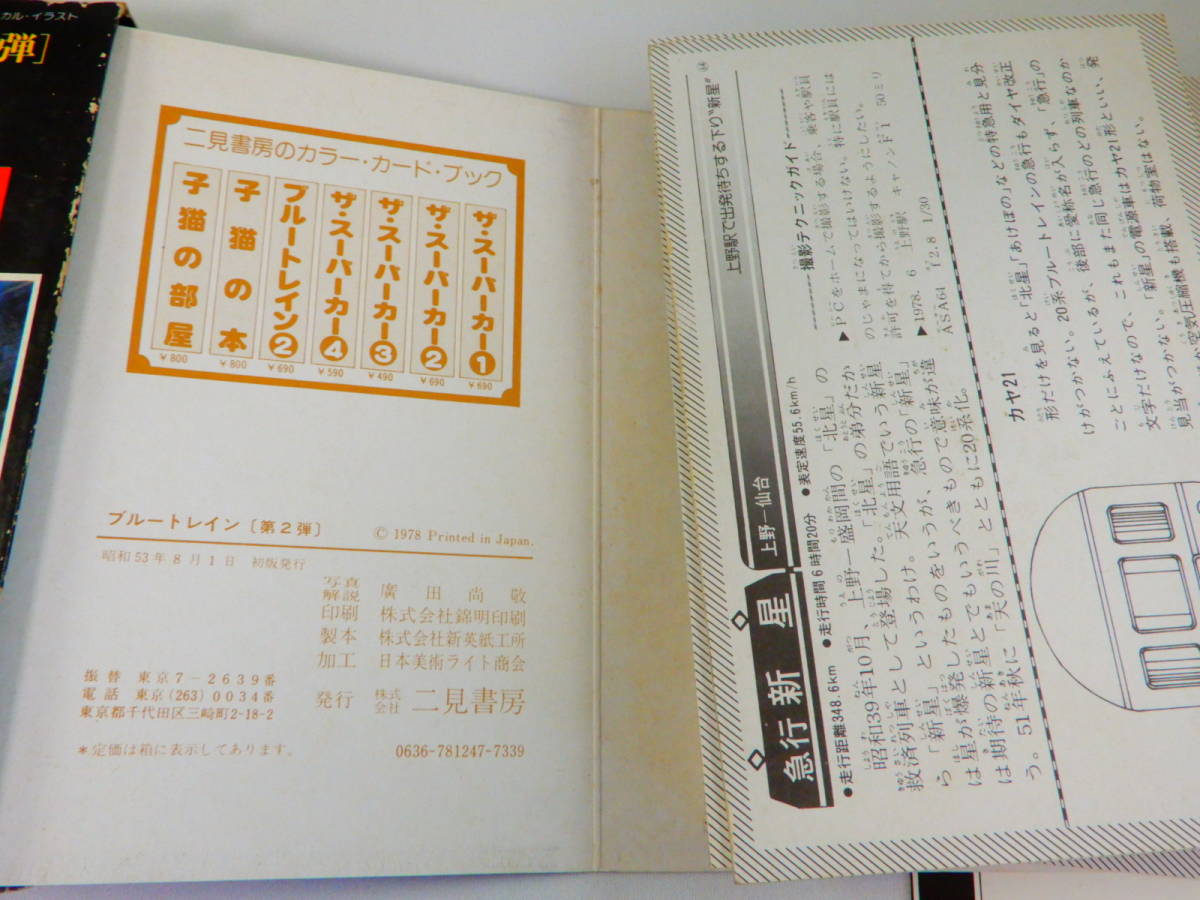 カル・イラスト
弾］
二見書房のカラー・カード・ブック
ザ・スーパーカー❶
￥690
ザ・スーパーカー❷
￥690
ザ・スーパーカー❸
￥490
ザ・スーパーカー❹
￥590
ブルートレイン❷
￥690
子猫の本
￥800
子猫の部屋
￥800
ブルートレイン〔第２弾〕
© 1978 Printed in Japan.
昭和53年８月１日　初版発行
写真
解説　廣田尚敬
印刷　株式会社錦明印刷
製本　株式会社新英紙工所
加工　日本美術ライト商会
発行　株式会社　二見書房
振替　東京７－２６３９番
電話　東京(263)００３４番
東京都千代田区三崎町2-18-2
＊定価は箱に表示してあります。
0636-781247-7339
急行新星
上野―仙台
上野駅で出発待ちする下り“新星”
●走行距離348.6km　●走行時間６時間20分　●表定速度55.6km/h
昭和39年10月、上野―盛岡間の「北星」の
救済列車として登場した。「北星」の弟分だか
ら「新星」というわけ。天文用語でいう新星
は星が爆発したものをいうが、急行の「新星」
は期待の新星とでもいうべきもので意味が違
う。51年秋に「天の川」とともに20系化。
撮影テクニックガイド
▶ＰＣをホームで撮影する場合、乗客や駅員
のじゃまになってはいけない。特に駅員には
許可を得てから撮影するようにしたい。
▶1978．６　上野駅　キャノンＦ１　50ミリ
ＡＳＡ64　ｆ2.8　1/30
カヤ21
形だけを見ると「北星」「あけぼの」などの特急用と見分
けがつかない。20系ブルートレインの急行もダイヤ改正
ごとにふえているが、後部に愛称名が入らず、「急行」の
文字だけなので、これもまた同じ急行のどの列車なのか
見当がつかない。「新星」の電源車はカヤ21形といい、発
空気圧縮機も搭載、荷物室はない。